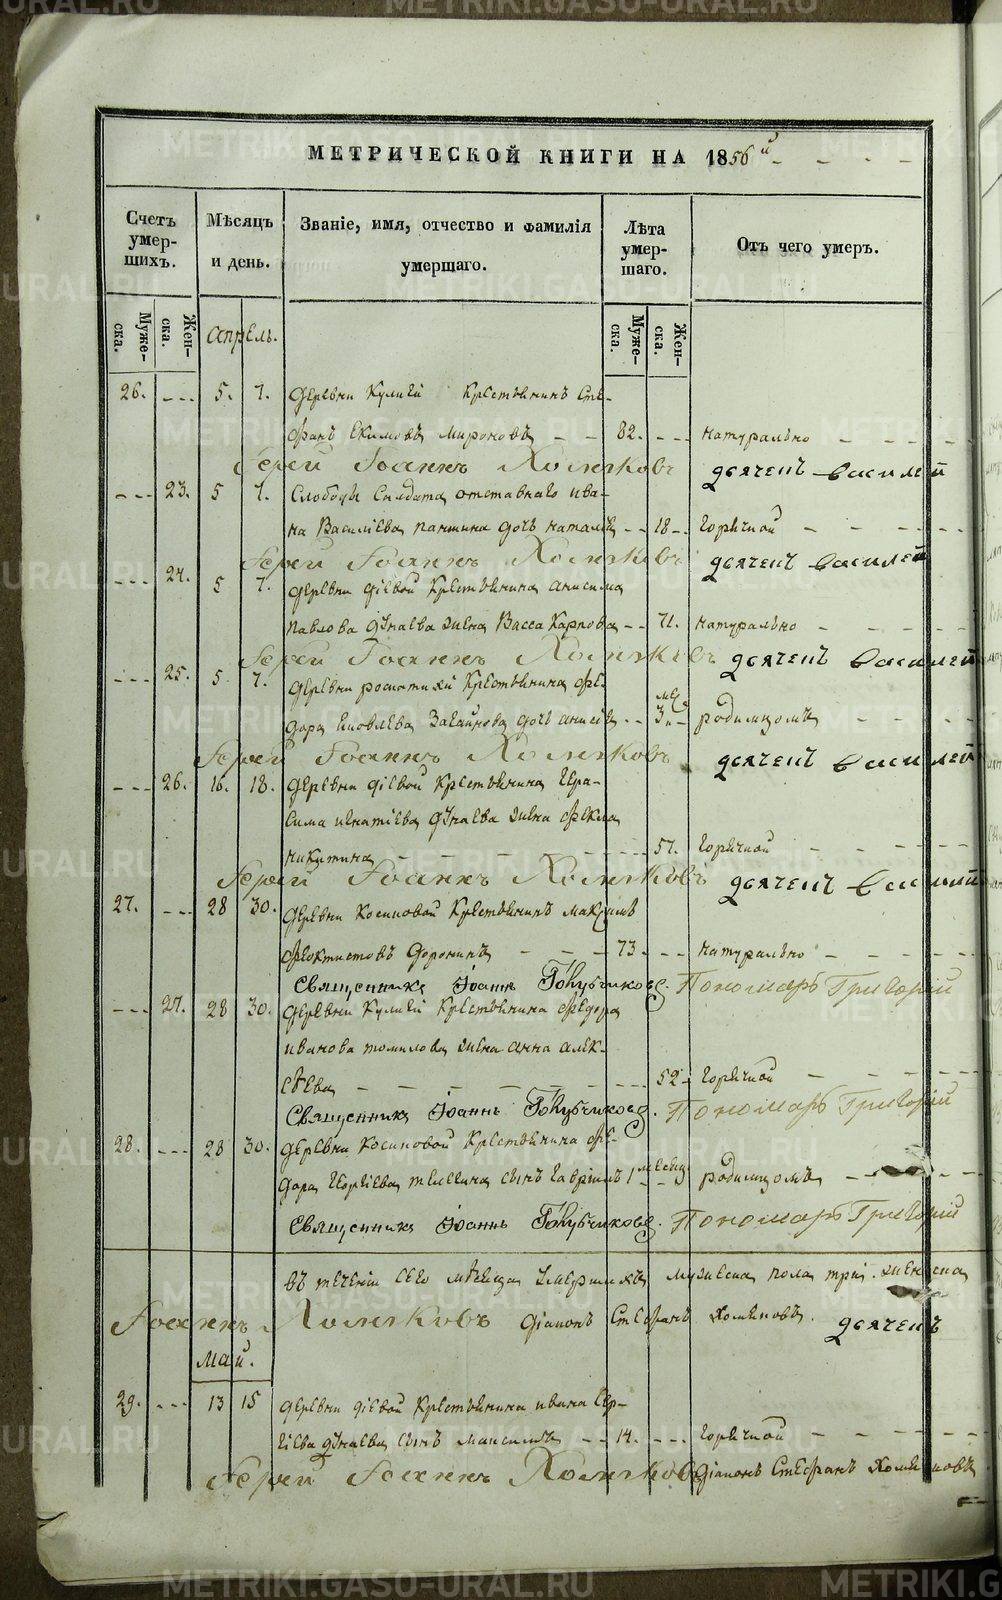 МЕТРИЧЕСКОЙ КНИГИ НА 1856й
Счетъ умер-шихъ.
Мѣсяцъ и день.
Званіе, имя, отчество и фамилія умершаго.
Лѣта умер-шаго.
Отъ чего умеръ.
Муже-ска. Жен-ска.
Апрель.
Муже-ска. Жен-ска.
26. --- 5. 7. Деревни Кулиги Крестьянинъ Сте-
фанъ Екимовъ Мироновъ -- 82. --- натурально
Іерей Іоаннъ Холмяковъ дьячекъ Василей
--- 23. 5 7. Слободы Солдата отставнаго Ива-
на Василіева Паншина дочь Наталья -- 18 -- Горячкой
Іерей Іоаннъ Холмяковъ дьячекъ Василей
--- 24. 5 7. деревни Діевой Крестьянина Анисима
Павлова Дунаева жена Васса Карпова -- 71. натурально
Іерей Іоаннъ Холмяковъ дьячекъ Василей
--- 25. 5 7. деревни Крестьянина Фе-
дора Яковлева дочь Анисія -- 3 мес родимцомъ
Іерей Іоаннъ Холмяковъ дьячекъ Василей
--- 26. 16. 18. деревни Діевой Крестьянина Гера-
сима Игнатіева Дунаева жена Фекла
Никитина 57. Горячкой
Іерей Іоаннъ Холмяковъ дьячекъ Василий
27. --- 28 30. деревни Косиковой Крестьянинъ Максимъ
Феоктистовъ Доронинъ --- 73 --- натурально
Священникъ Іоаннъ Голубчиковъ. Пономарь Григорій
--- 27. 28 30. деревни Кулиги Крестьянина Федора
Иванова Томилова жена Анна Алек-
сѣева 52 Горячкой
Священникъ Іоаннъ Голубчиковъ. Пономарь Григорій
28. --- 28 30. деревни Косиковой Крестьянина Фе-
дора сынъ Гавріилъ 1 месяц родимцомъ
Священникъ Іоаннъ Голубчиковъ. Пономарь Григорій
въ теченіи сего мѣсяца умершихъ мужеска пола три. женска
Іоаннъ Холмяковъ діаконъ Стефанъ Хомяковъ. дьячекъ
Май.
29. --- 13 15 деревни Діевой Крестьянина Ивана Сер-
гіева Дунаева сынъ Максимъ -- 14. --- Горячкой
Іерей Іоаннъ Холмяковъ діаконъ Стефанъ Хомяковъ
METRIKI.GASO-URAL.RU